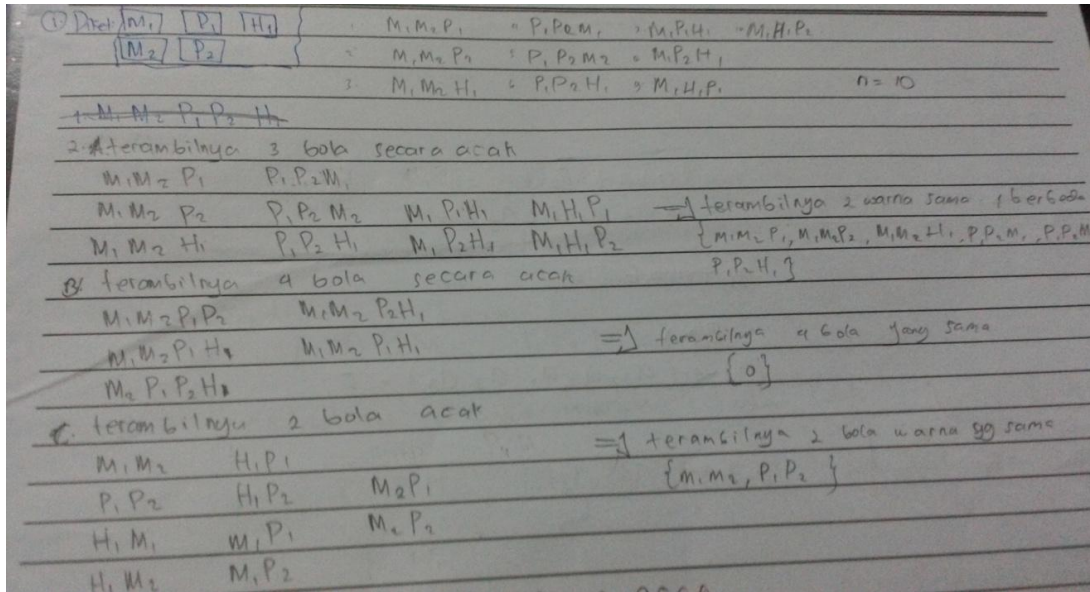 ① Diket: M₁ P₁ H₁ 1. M₁M₂P₁ 4. P₁P₂M₁ 7. M₁P₁H₁ 10. M₁H₁P₂
M₂ P₂ 2. M₁M₂P₂ 5. P₁P₂M₂ 8. M₁P₂H₁
3. M₁M₂H₁ 6. P₁P₂H₁ 9. M₁H₁P₁ n = 10
1. M₁ M₂ P₁ P₂ H₁
2. A terambilnya 3 bola secara acak
M₁M₂P₁ P₁P₂M₁
M₁M₂P₂ P₁P₂M₂ M₁P₁H₁ M₁H₁P₁ => terambilnya 2 warna sama 1 berbeda
M₁M₂H₁ P₁P₂H₁ M₁P₂H₁ M₁H₁P₂ {M₁M₂P₁, M₁M₂P₂, M₁M₂H₁, P₁P₂M₁, P₁P₂M
P₁P₂H₁}
B. terambilnya 4 bola secara acak
M₁M₂P₁P₂ M₁M₂P₂H₁
M₁M₂P₁H₁ M₁M₂P₁H₁ => terambilnya 4 bola yang sama
M₂P₁P₂H₁ {0}
C. terambilnya 2 bola acak
M₁M₂ H₁P₁ => terambilnya 2 bola warna yg sama
P₁P₂ H₁P₂ M₂P₁ {M₁M₂, P₁P₂}
H₁M₁ M₁P₁ M₂P₂
H₁M₂ M₁P₂